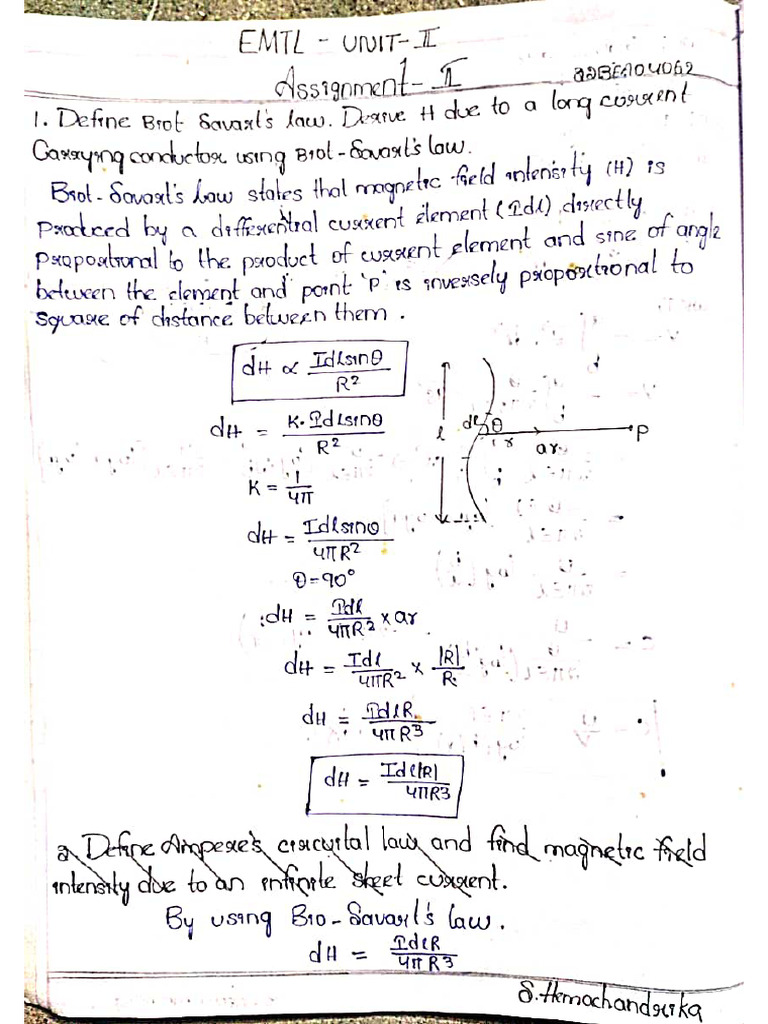 EMTL - UNIT-II
Assignment-II
1. Define Biot Savart's law. Derive H due to a long current
Carrying conductor using Biot-Savart's law.
Biot-Savart's Law states that magnetic field intensity (H) is
produced by a differential current element (Idl), directly
propostional to the product of current element and sine of angle
between the element and point 'P' is inversely proportional to
square of distance between them.
dH ∝ Idlsinθ/R²
dH = K·Idlsinθ/R²
K = 1/4π
dH = Idlsinθ/4πR²
θ=90°
l
dl
θ
r
ar
P
∴dH = Idl/4πR² × ar
dH = Idl/4πR² × |R|/R
dH = IdlR/4πR³
dH = Idl|R|/4πR3
2. Define Ampere's circuital law and find magnetic field
intensity due to an infinite sheet current.
By using Bio-Savart's law.
dH = IdlR/4πR³
S.Hemachandrika